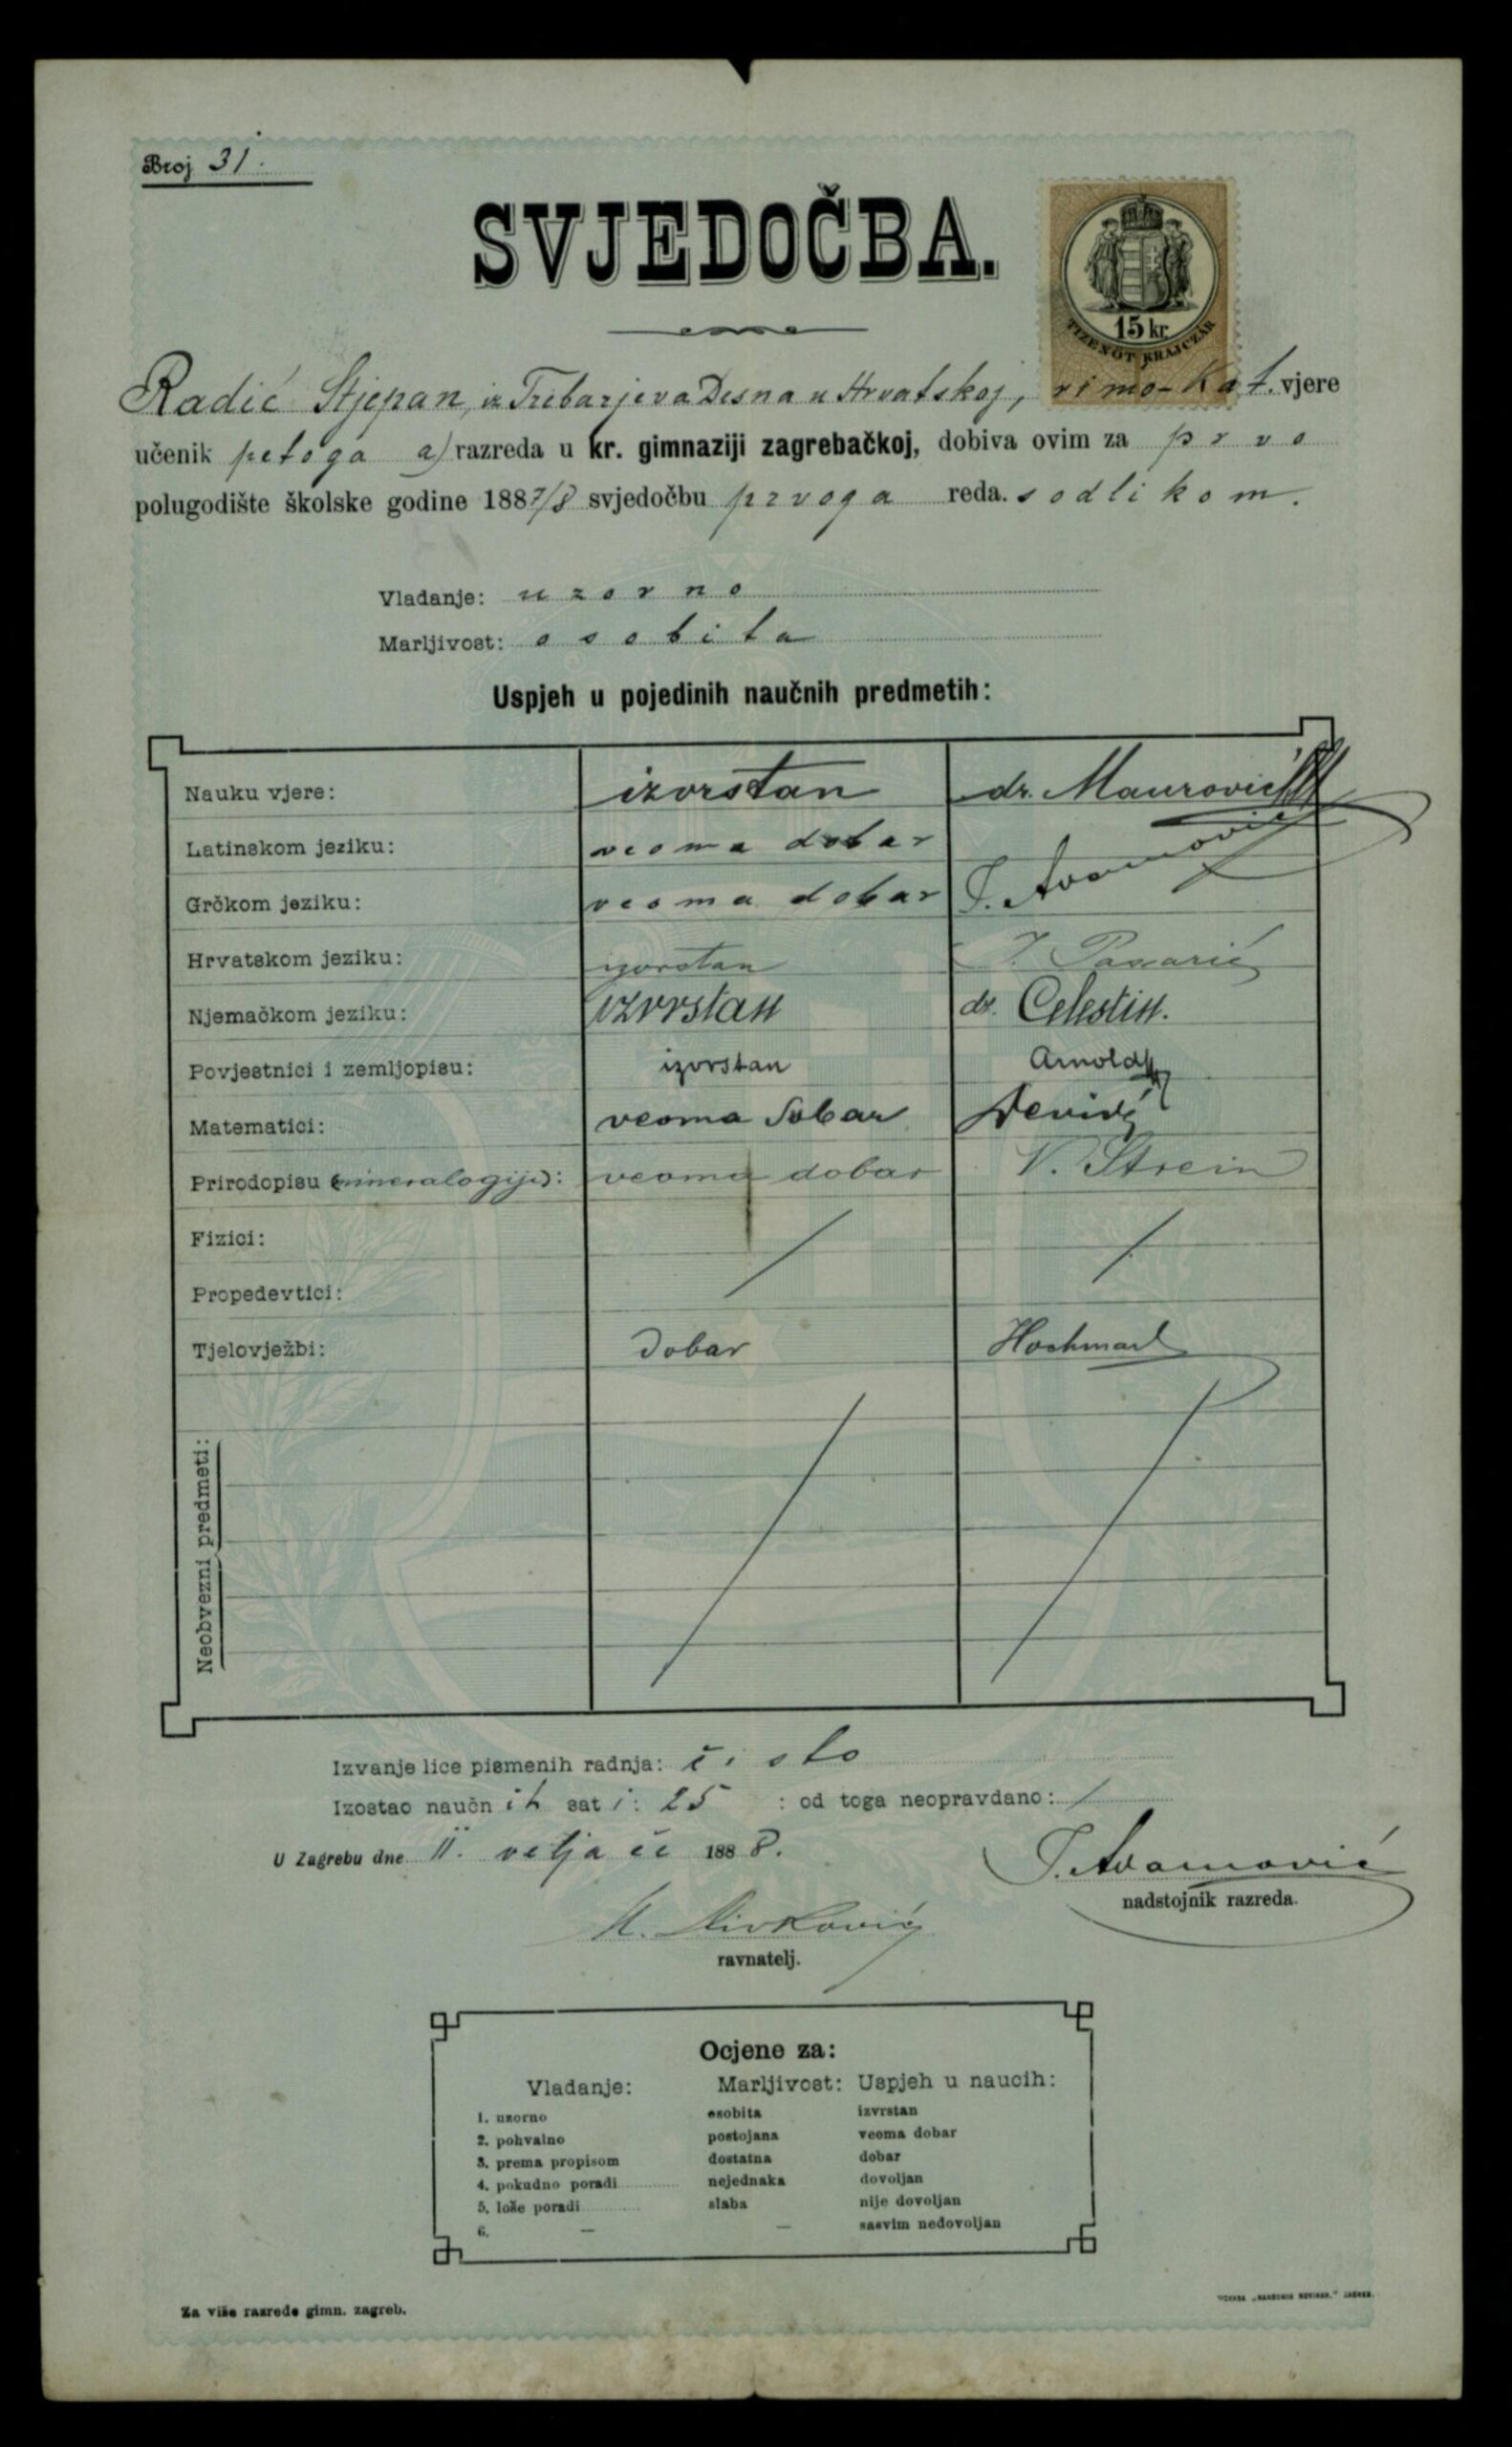 Broj 31.
SVJEDOČBA.
15 kr.
TIZENÖT KRAJCZÁR
Radić Stjepan, iz Trebarjeva Desna u Hrvatskoj, rimo-kat. vjere
učenik petoga a) razreda u kr. gimnaziji zagrebačkoj, dobiva ovim za prvo
polugodište školske godine 1887/8 svjedočbu prvoga reda. s odlikom.
Vladanje: uzorno
Marljivost: osobita
Uspjeh u pojedinih naučnih predmetih:
Nauku vjere: izvrstan dr. Maurović
Latinskom jeziku: veoma dobar
Grčkom jeziku: veoma dobar T. Avamović
Hrvatskom jeziku: izvrstan
Njemačkom jeziku: izvrstan dr. Celestin.
Povjestnici i zemljopisu: izvrstan Arnold
Matematici: veoma dobar
Prirodopisu (mineralogiji): veoma dobar V. Strein
Fizici:
Propedevtici:
Tjelovježbi: dobar Hochman
Neobvezni predmeti:
Izvanje lice pismenih radnja: čisto
Izostao naučnih sati: 25 : od toga neopravdano: /
U Zagrebu dne 11. veljače 1888.
T. Avamović
nadstojnik razreda.
ravnatelj.
Ocjene za:
Vladanje: Marljivost: Uspjeh u naucih:
1. uzorno osobita izvrstan
2. pohvalno postojana veoma dobar
3. prema propisom dostatna dobar
4. pokudno poradi nejednaka dovoljan
5. loše poradi slaba nije dovoljan
6. — — sasvim nedovoljan
Za više razrede gimn. zagreb.